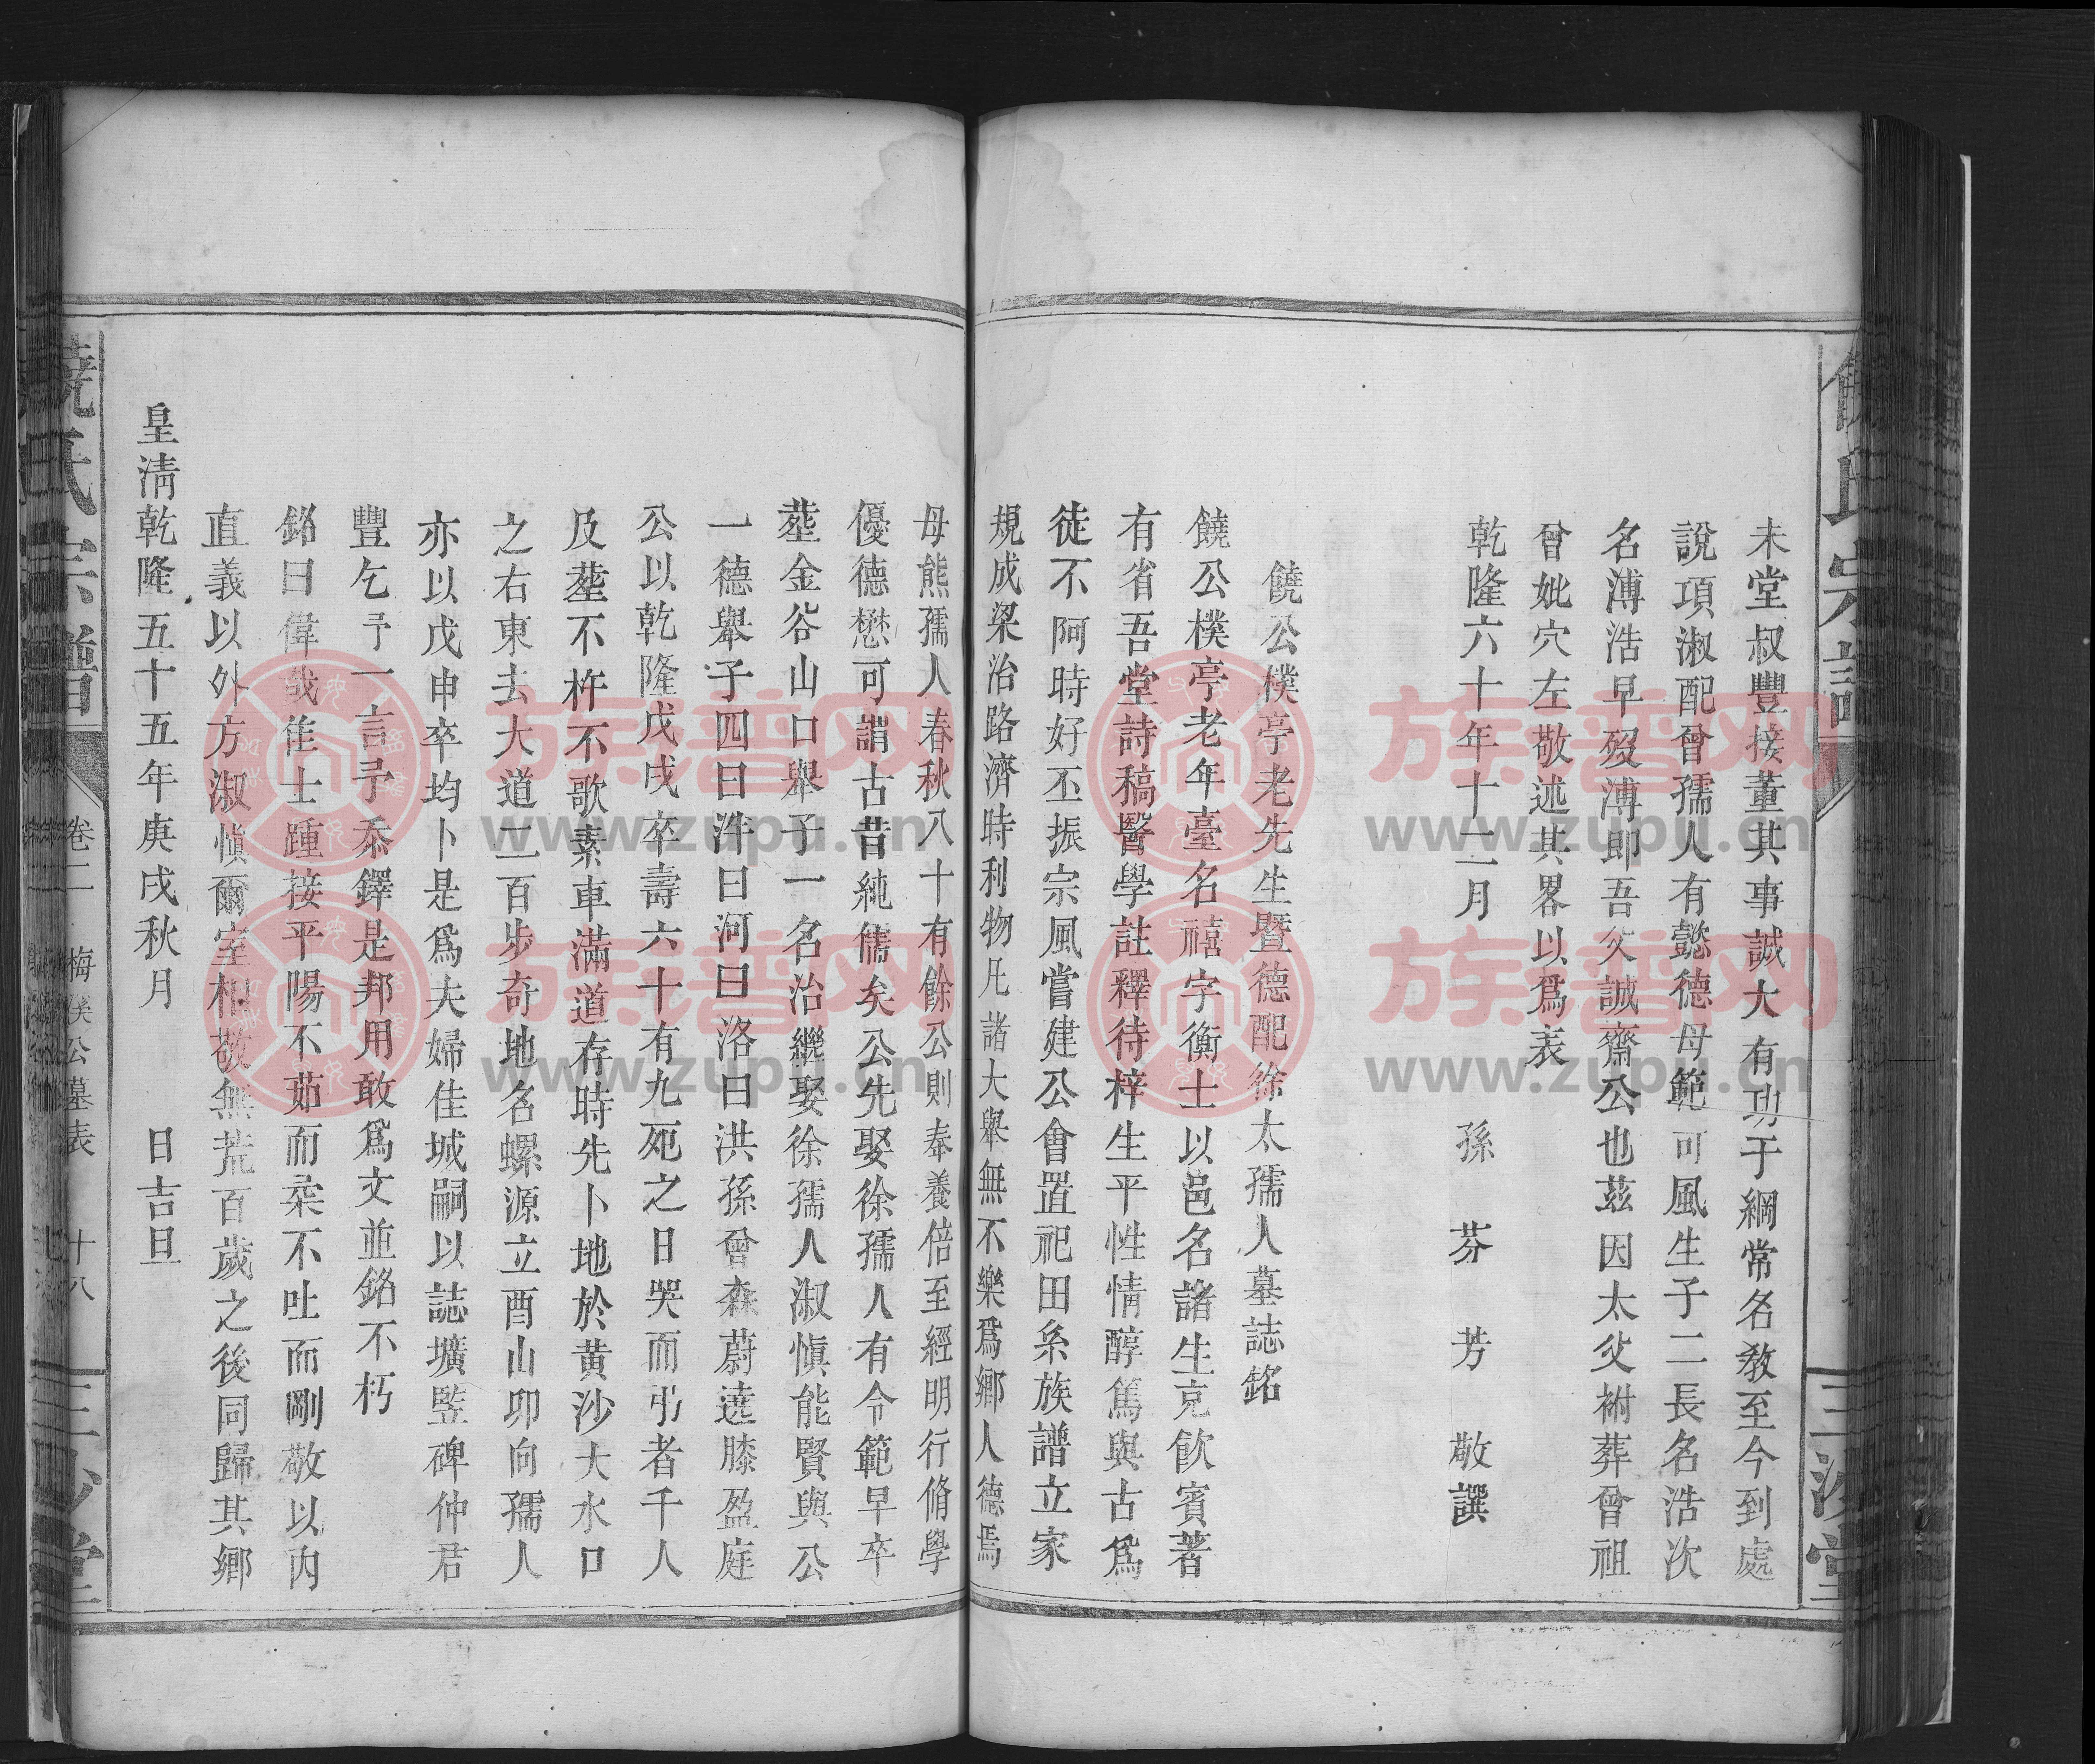 未堂叔豐接董其事誠大有功于綱常名教至今到處
說項淑配曾孺人有懿德母範可風生子二長名浩次
名溥浩早歿溥即吾父誠齋公也茲因太父祔葬曾祖
曾妣穴左敬述其畧以爲表
乾隆六十年十二月 孫 芬 芳 敬譔
饒公樸亭老先生暨德配徐太孺人墓誌銘
饒公樸亭老年臺名禧字衡士以邑名諸生克飲賓著
有省吾堂詩稿醫學註釋待梓生平性情醇篤與古爲
徒不阿時好丕振宗風嘗建公會置祀田糸族譜立家
規成梁治路濟時利物凡諸大舉無不樂爲鄉人德焉
母熊孺人春秋八十有餘公則奉養倍至經明行脩學
優德懋可謂古昔純儒矣公先娶徐孺人有令範早卒
塟金谷山口舉子一名治繼娶徐孺人淑慎能賢與公
一德舉子四曰泮曰河曰洛曰洪孫曾森蔚遶膝盈庭
公以乾隆戊戌卒壽六十有九死之日哭而弔者千人
及塟不杵不歌素車滿道存時先卜地於黃沙大水口
之右東去大道二百步奇地名螺源立酉山卯向孺人
亦以戊申卒均卜是爲夫婦佳城嗣以誌壙竪碑仲君
豐乞予一言予忝鐸是邦用敢爲文並銘不朽
銘曰偉哉佳士踵接平陽不茹而柔不吐而剛敬以內
直義以外方淑慎爾室相敬無荒百歲之後同歸其鄉
皇清乾隆五十五年庚戌秋月 日吉旦
饒氏宗譜 卷二 梅溪公墓表 十八